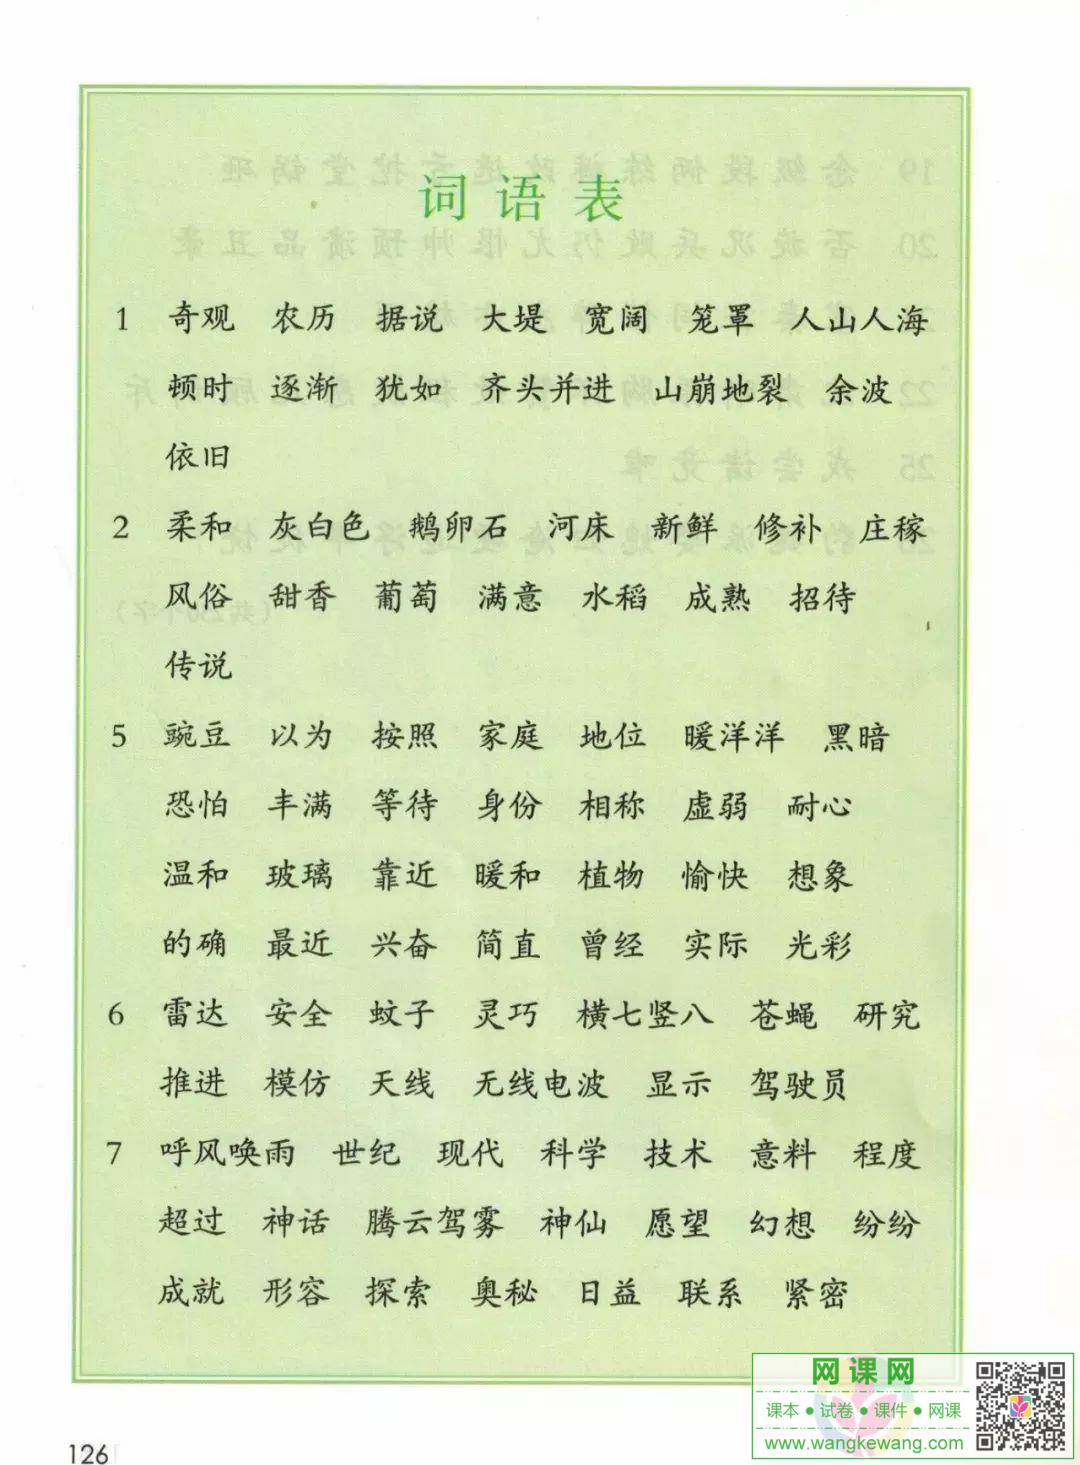 词语表
1 奇观 农历 据说 大堤 宽阔 笼罩 人山人海
顿时 逐渐 犹如 齐头并进 山崩地裂 余波
依旧
2 柔和 灰白色 鹅卵石 河床 新鲜 修补 庄稼
风俗 甜香 葡萄 满意 水稻 成熟 招待
传说
5 豌豆 以为 按照 家庭 地位 暖洋洋 黑暗
恐怕 丰满 等待 身份 相称 虚弱 耐心
温和 玻璃 靠近 暖和 植物 愉快 想象
的确 最近 兴奋 简直 曾经 实际 光彩
6 雷达 安全 蚊子 灵巧 横七竖八 苍蝇 研究
推进 模仿 天线 无线电波 显示 驾驶员
7 呼风唤雨 世纪 现代 科学 技术 意料 程度
超过 神话 腾云驾雾 神仙 愿望 幻想 纷纷
成就 形容 探索 奥秘 日益 联系 紧密
126
网课网
课本●试卷●课件●网课
www.wangkewang.com